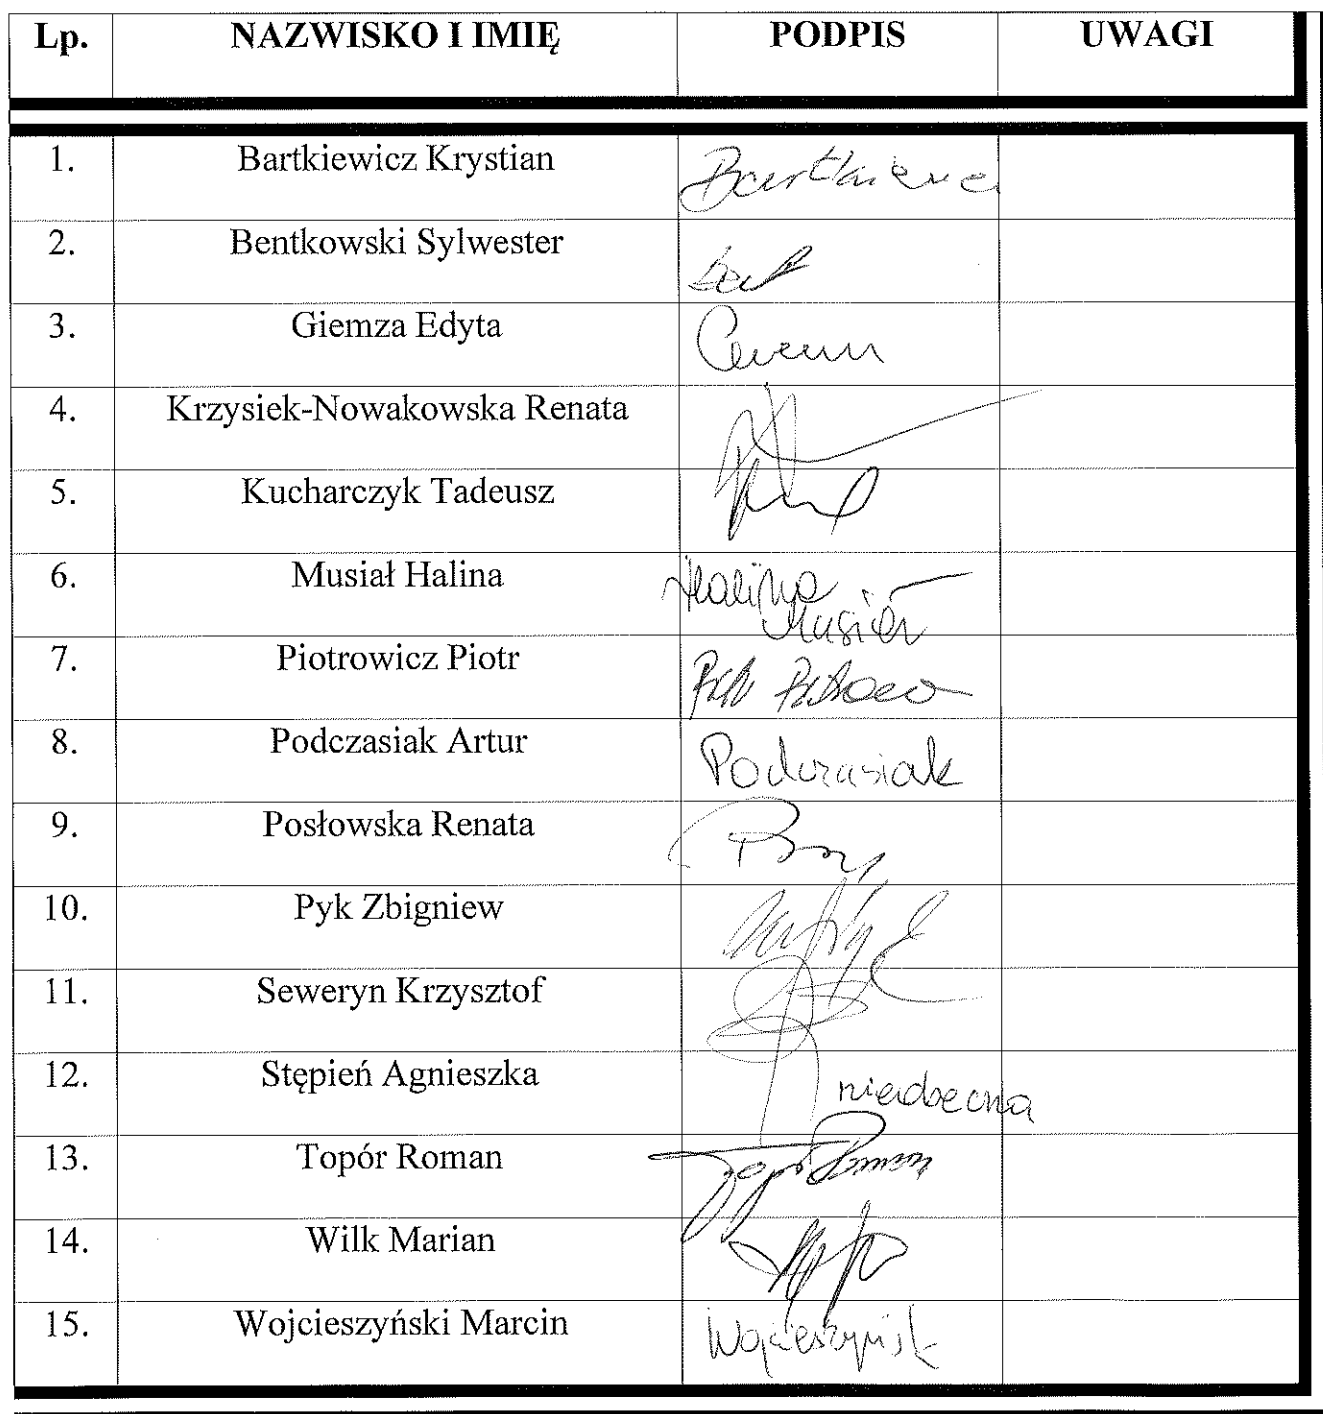 Lp. NAZWISKO I IMIĘ PODPIS UWAGI
1. Bartkiewicz Krystian
2. Bentkowski Sylwester
3. Giemza Edyta
4. Krzysiek-Nowakowska Renata
5. Kucharczyk Tadeusz
6. Musiał Halina Halina
Musiał
7. Piotrowicz Piotr
8. Podczasiak Artur Podczasiak
9. Posłowska Renata
10. Pyk Zbigniew
11. Seweryn Krzysztof
12. Stępień Agnieszka nieobecna
13. Topór Roman Topór Roman
14. Wilk Marian
15. Wojcieszyński Marcin